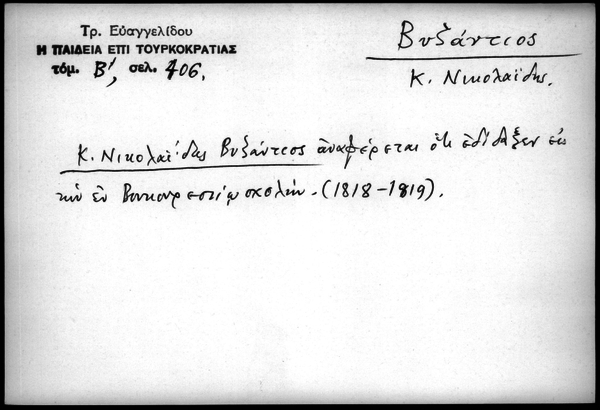 Τρ. Εὐαγγελίδου
Η ΠΑΙΔΕΙΑ ΕΠΙ ΤΟΥΡΚΟΚΡΑΤΙΑΣ
τόμ. Β', σελ. 406.
Βυζάντιος
Κ. Νικολαΐδης.
Κ. Νικολαΐδης Βυζάντιος ἀναφέρεται ὅτι ἐδίδαξεν εἰς
τὴν ἐν Βουκουρεστίῳ σχολήν. (1818-1819).